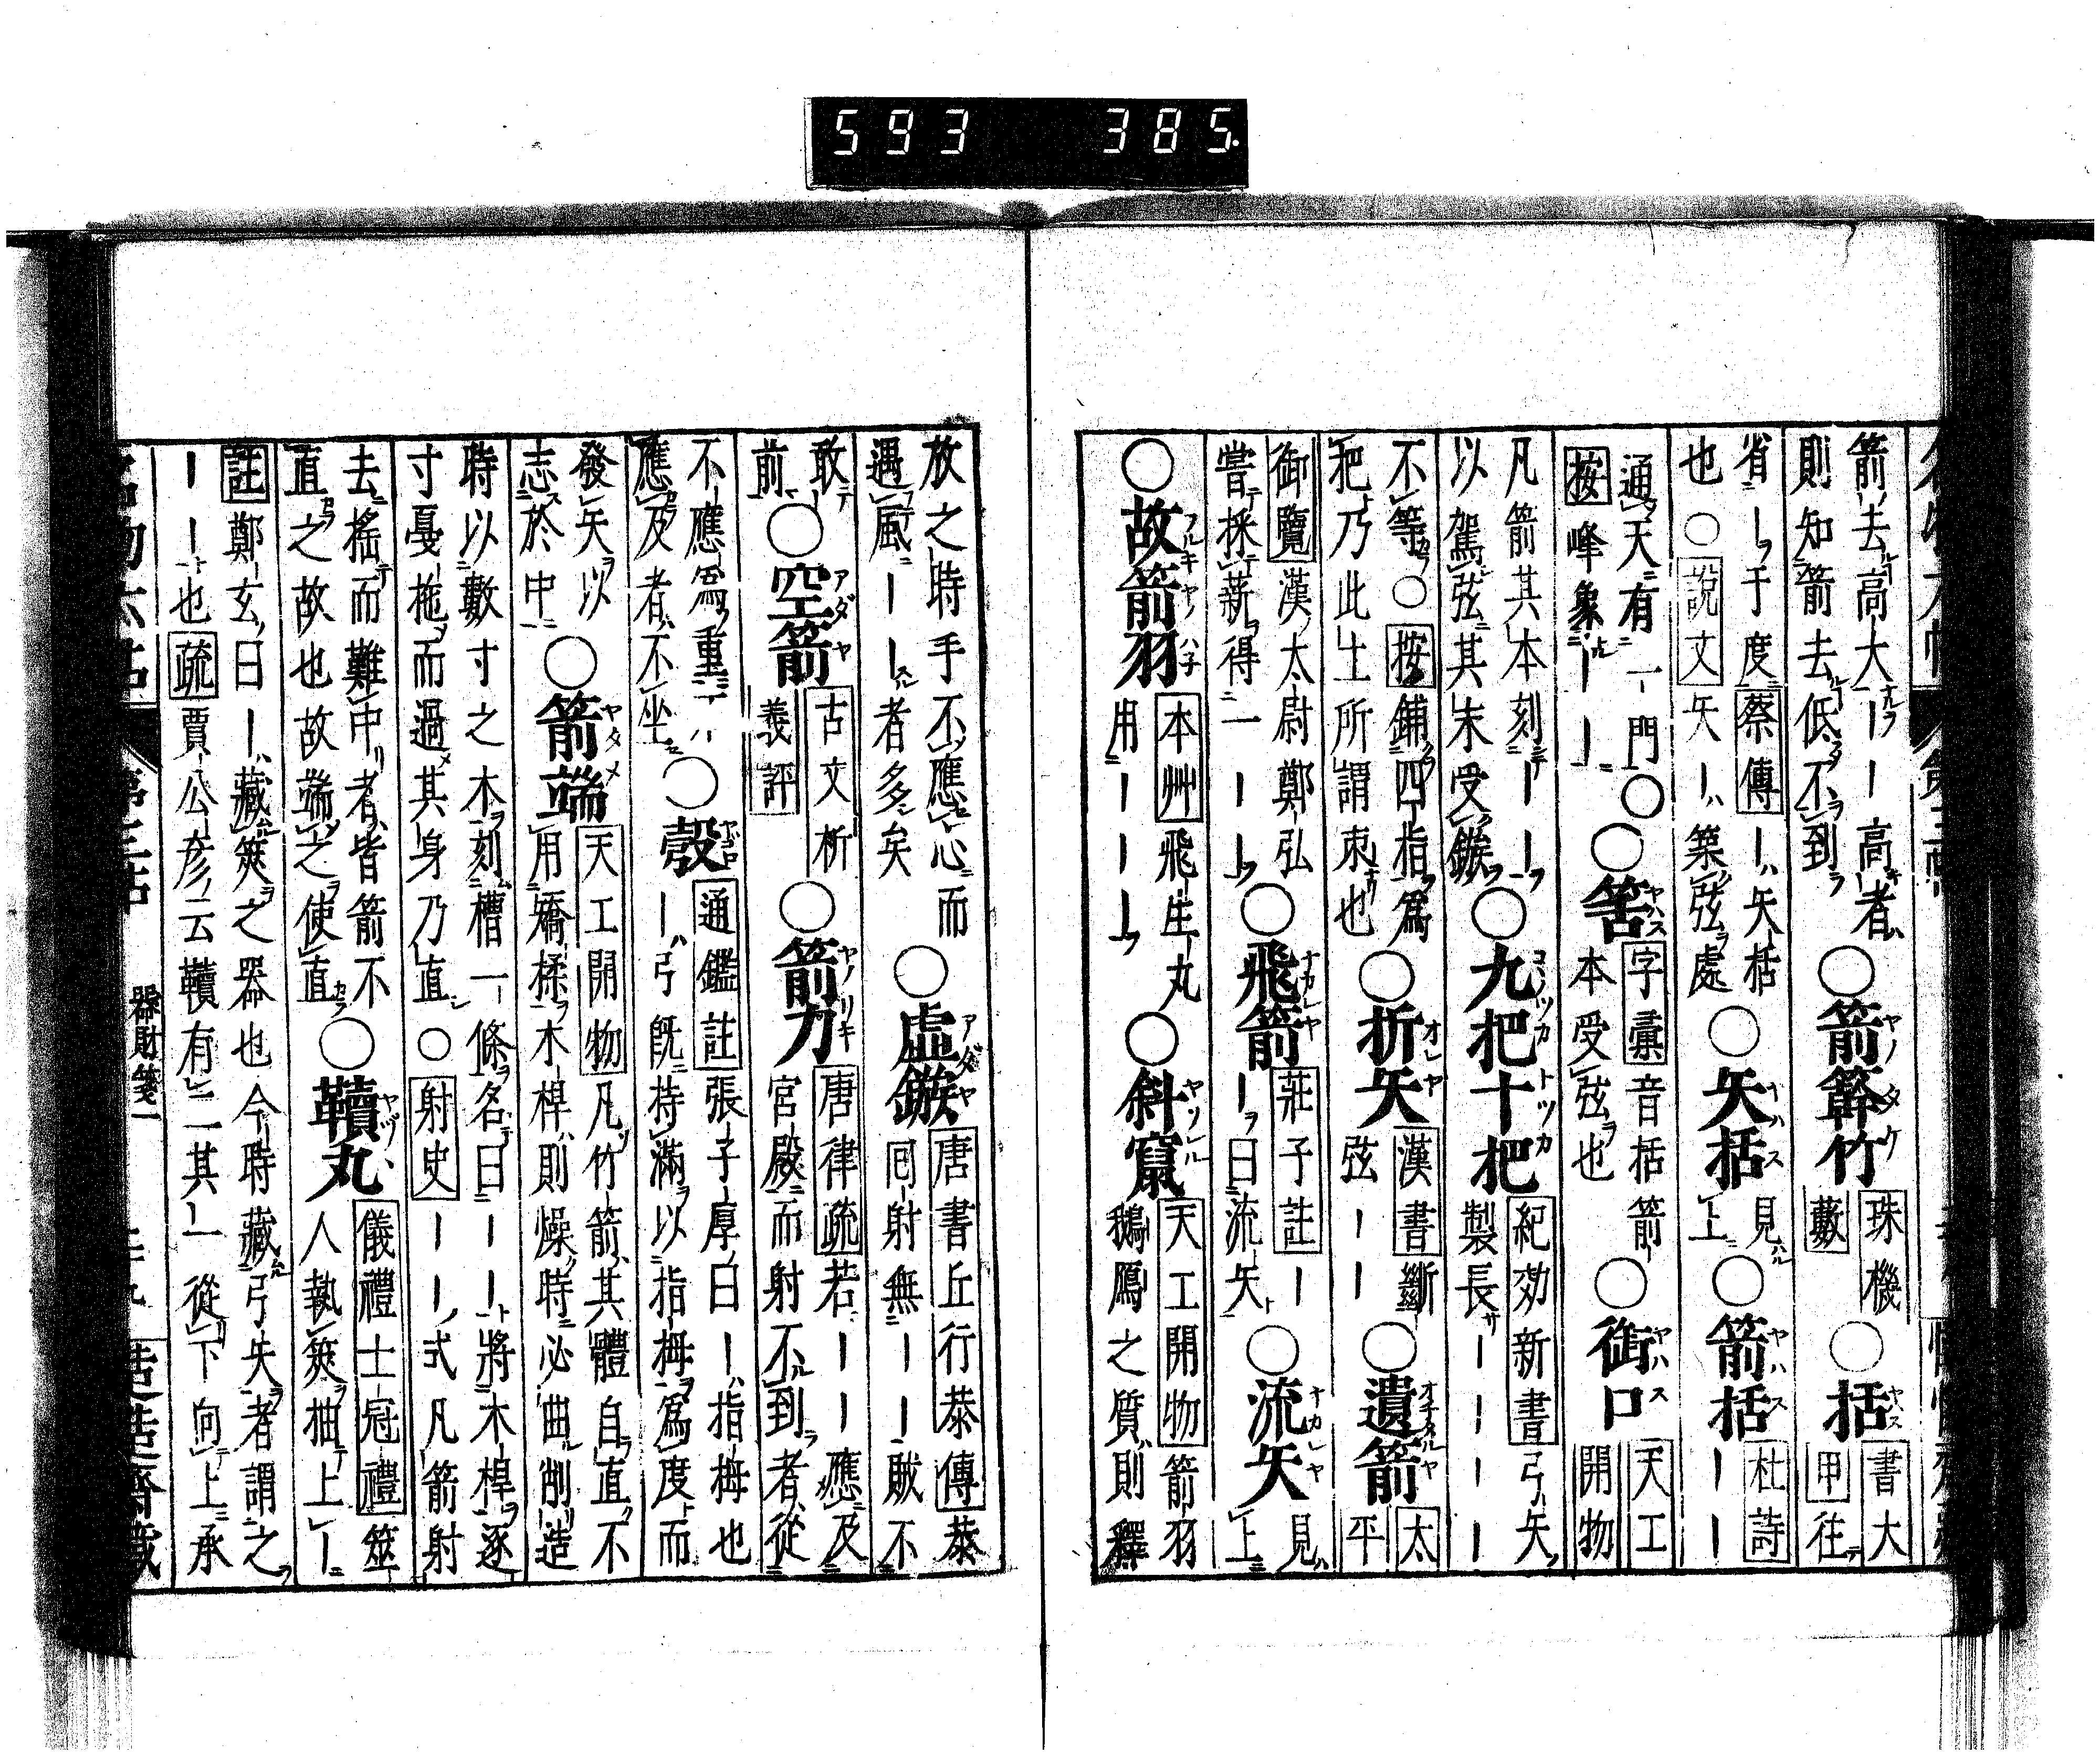 箭去高大ーー高者
則知箭去低不到
○箭簳竹
珠機
藪
○括
書大
甲往
省ー于度蔡傳ー矢括
也○說文矢ー築弦處
○矢括
見
上
○箭括
杜詩
ーー
通天有一門○
按峰象ーー
○筈
字彙音括箭
本受弦也
○銜口
天工
開物
凡箭其本刻ーー
以駕弦其末受鏃
○九把十把
紀効新書弓矢
製長ーーーー
不等○按鋪四指爲
把乃此土所謂束也
○折矢
漢書斷
弦ーー
○遺箭
太
平
御覽漢太尉鄭弘
嘗採薪得一ーー
○飛箭
莊子註ー
ー曰流矢
○流矢
見
上
○故箭羽
本艸飛生丸
用ーーー
○斜竄
天工開物箭羽
鵝鴈之質則釋
放之時手不應心而
遇風ーー者多矣
○虛鏃
唐書丘行恭傳恭
囘射無ーー賊不
敢
前
○空箭
古文析
義評
○箭力
唐律疏若ーー應及
宮殿而射不到者從
不應爲重
應及者不坐
○彀
通鑑註張子厚曰ー指栂也
ー弓旣持滿以指栂爲度而
發矢以
志於中
○箭端
天工開物凡竹箭其體自直不
用矯揉木桿則燥時必曲削造
時以數寸之木刻槽一條名曰ーー將木桿逐
寸戞拖而過其身乃直○射史ーー式凡箭射
去搖而難中者皆箭不
直之故也故端之使直
○韇丸
儀禮士冠禮筮
人執筴抽上ー
註鄭玄曰ー藏筴之器也今時藏弓矢者謂之
ーー也疏賈公彥云韇有二其一從下向上承
器財箋一
593 385.